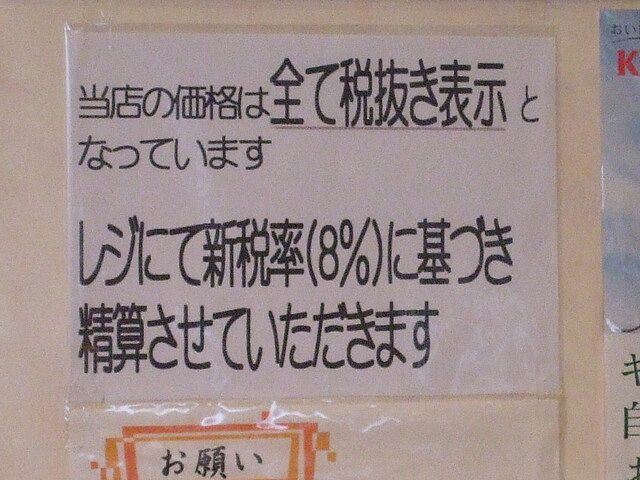 当店の価格は全て税抜き表示と
なっています
レジにて新税率(8%)に基づき
精算させていただきます
お願い
おい
K
キ
自